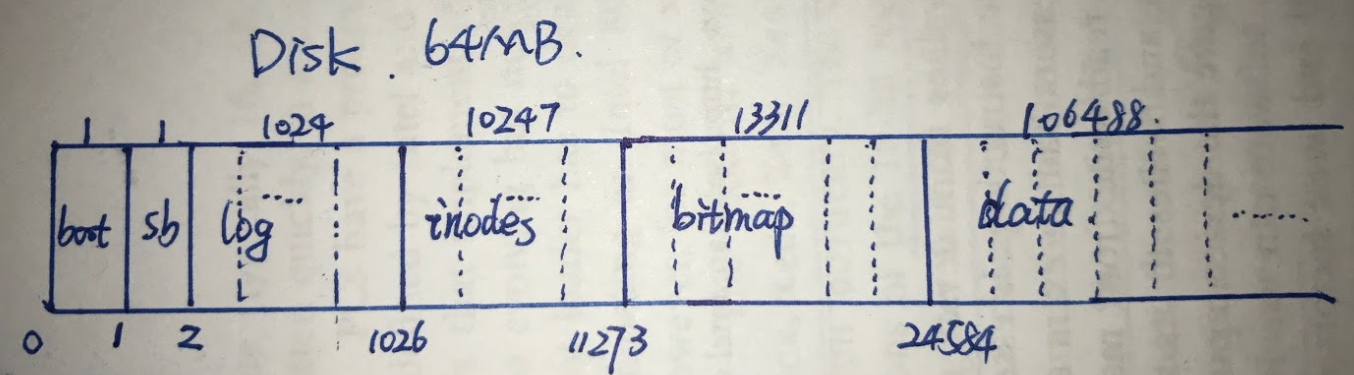 Disk. 64MB.
1 1 1024 10247 13311 106488.
boot sb log ..... inodes ..... bitmap ..... data .......
0 1 2 1026 11273 24584